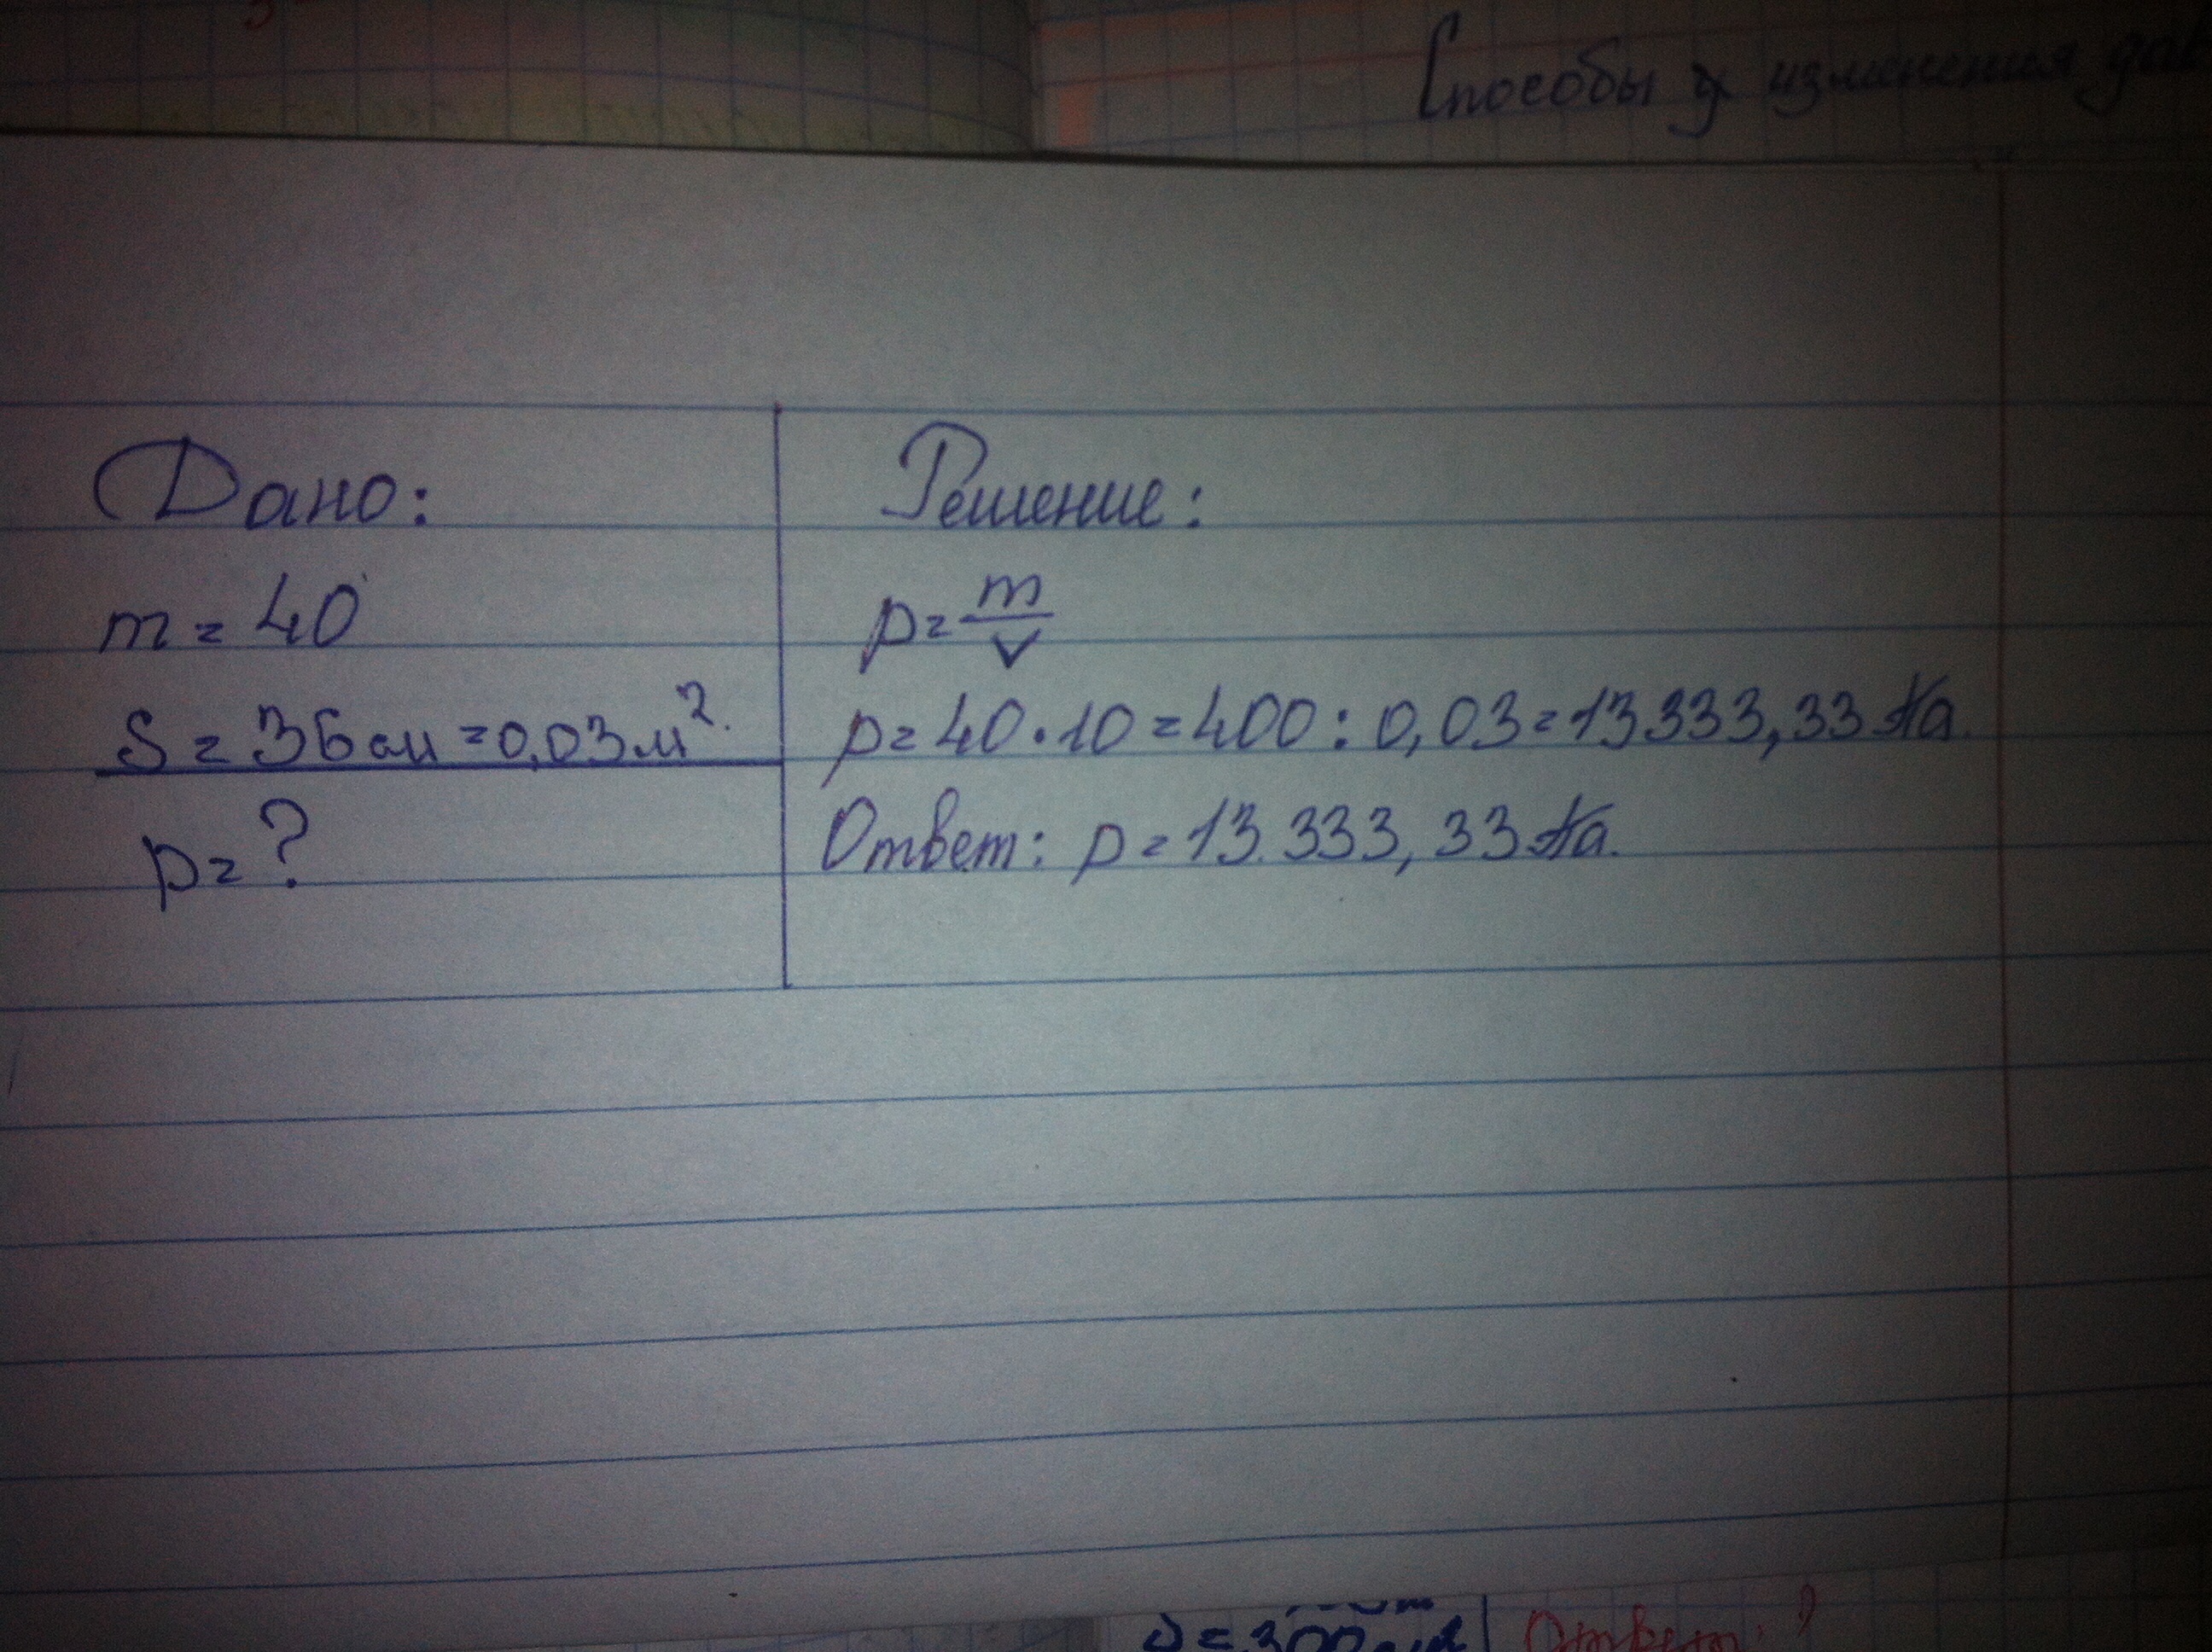 Способы изменения дав
Дано:
m = 40
S = 36 см = 0,03 м².
p = ?
Решение:
p = m/V
p = 40 · 10 = 400 : 0,03 = 13333,33 Па.
Ответ: p = 13.333,33 Па.
S = 300
Ответ: